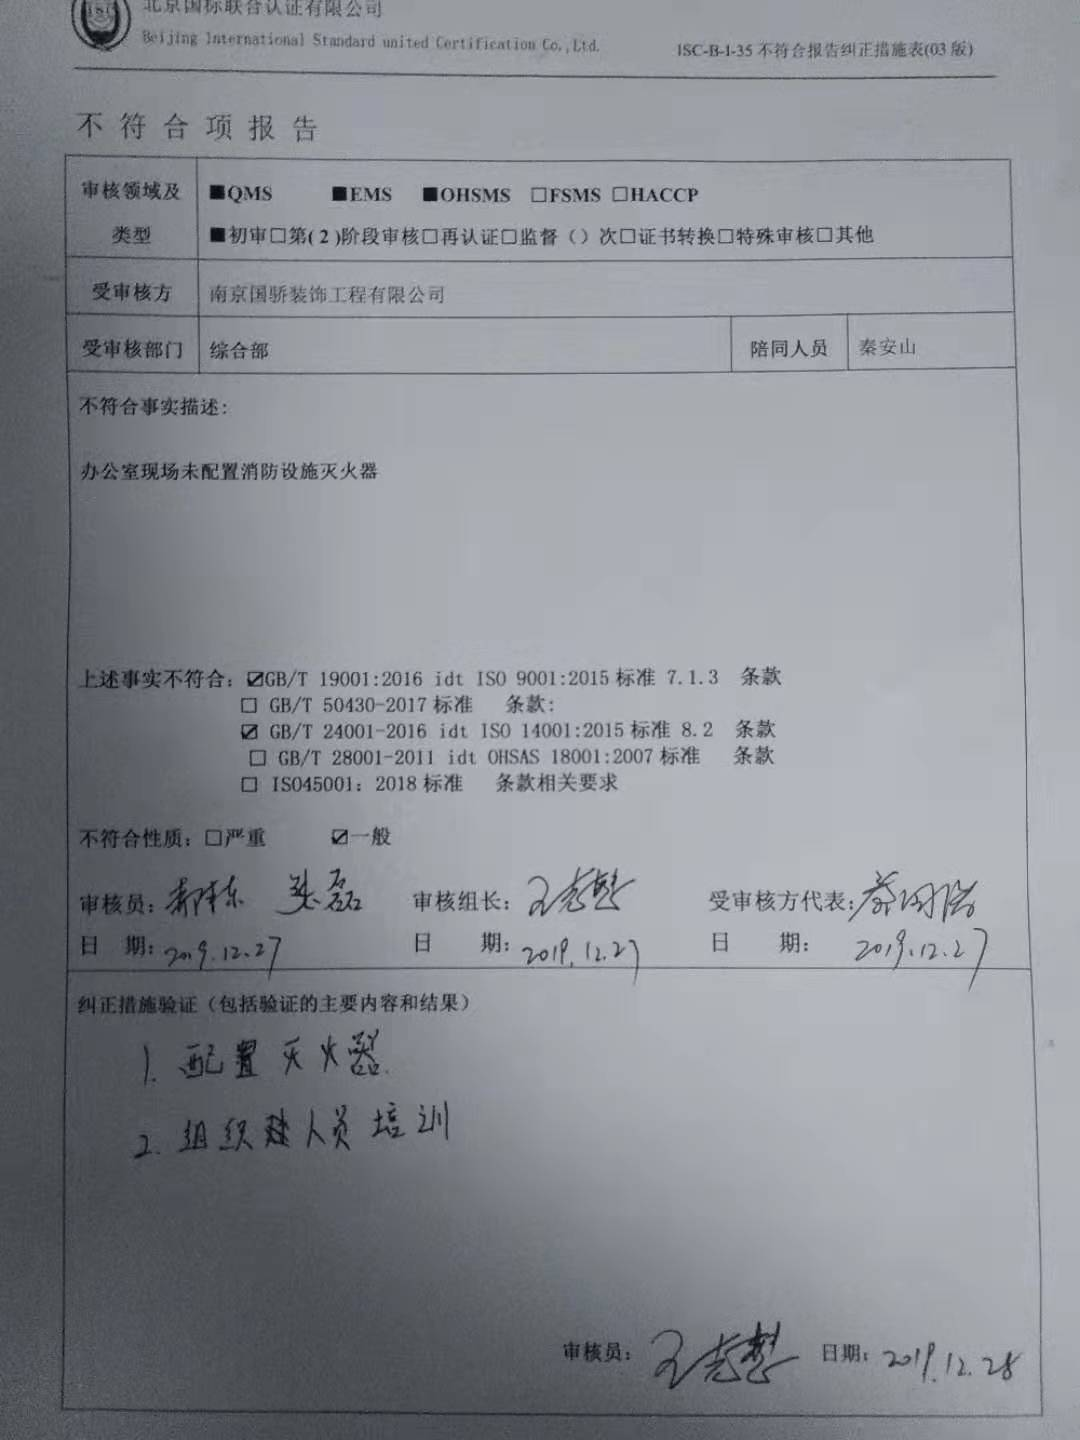 北京国标联合认证有限公司
Beijing International Standard united Certification Co.,Ltd.
ISC-B-I-35 不符合报告纠正措施表(03 版)
不符合项报告
审核领域及类型
■QMS ■EMS ■OHSMS □FSMS □HACCP
■初审□第( 2 )阶段审核□再认证□监督（）次□证书转换□特殊审核□其他
受审核方 南京国骄装饰工程有限公司
受审核部门 综合部 陪同人员 秦安山
不符合事实描述:
办公室现场未配置消防设施灭火器
上述事实不符合: ☑GB/T 19001:2016 idt ISO 9001:2015 标准 7.1.3 条款
□ GB/T 50430-2017 标准 条款:
☑ GB/T 24001-2016 idt ISO 14001:2015 标准 8.2 条款
□ GB/T 28001-2011 idt OHSAS 18001:2007 标准 条款
□ ISO45001: 2018 标准 条款相关要求
不符合性质: □严重 ☑一般
审核员: 审核组长: 受审核方代表:
日 期: 2019.12.27 日 期: 2019.12.27 日 期: 2019.12.27
纠正措施验证（包括验证的主要内容和结果）
1. 配置灭火器.
2. 组织 人员培训
审核员: 日期: 2019.12.28